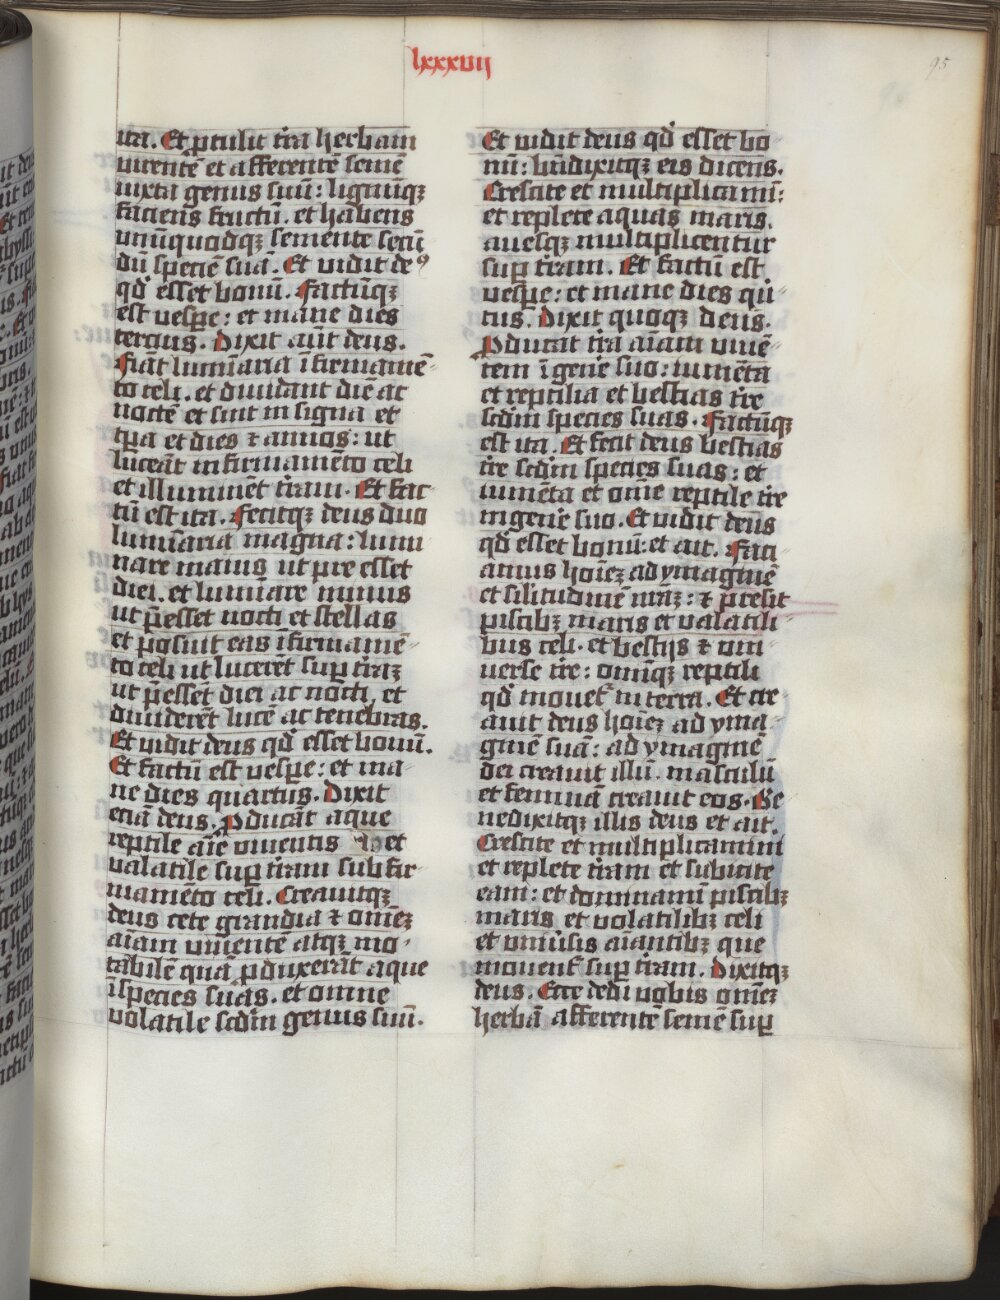 lxxxvij
95
ita. Et ꝓtulit t̄ra herbam
virentē et afferentē semē
iuxta genus suū: lignūqꝫ
faciens fructū. et habens
vnūquodqꝫ sementē secū
dū speciē suā. Et vidit deꝰ
qd̓ esset bonū. Factūqꝫ
est vespe: et mane dies
tercius. Dixit aūt deus.
Fiāt lumīaria ī firmamē
to celi. et diuidant diē ac
noctē et sint in signa et
tp̄a et dies ⁊ annos: ut
luceāt in firmamēto celi
et illuminēt t̄ram. Et fac
tū est ita. Fecitqꝫ deus duo
lumīaria magna: lumi
nare maius ut p̄re esset
diei. et lumīare minus
ut p̄esset nocti et stellas
et posuit eas ī firmamē
to celi ut lucerēt sup t̄raꝫ
ut p̄essēt diei ac nocti, et
diuiderēt lucē ac tenebras.
Et vidit deus qd̓ esset bonū.
Et factū est vespe: et ma
ne dies quartus. Dixit
eciā deus. Ꝓducāt aque
reptile aīe viuentis et
valatile sup t̄ram sub fir
mamēto celi. Creauitqꝫ
deus cete grandia ⁊ om̄eꝫ
aīam viuentē atqꝫ mo
tabilē quā ꝓduxerāt aque
ī species suas. et omne
volatile scdm̄ genus suū.
Et vidit deus qd̓ esset bo
nū: bn̄dixitqꝫ eis dicens.
Crescite et multiplicamī:
et replete aquas maris.
auesqꝫ multiplicentur
sup t̄ram. Et factū est
vespe: et mane dies qui
tus. Dixit quoqꝫ deus.
Ꝓducat t̄ra aīam viuē
tem ī gen̄e suo: iumēta
et reptilia et bestias t̄re
scdm̄ species suas. Factūqꝫ
est ita. Et fecit deus bestias
t̄re scdm̄ species suas: et
iumēta et om̄e reptile t̄re
in gen̄e suo. Et vidit deus
qd̓ esset bonū: et ait. Faci
amus hoīeꝫ ad ymaginē
et silitudinē n̄raꝫ: ⁊ p̄resit
piscibꝫ maris et valatili
bus celi. et bestijs ⁊ vni
uerse t̄re: omīqꝫ reptili
qd̓ mouet᷑ in terra. Et cre
auit deus hoīeꝫ ad yma
ginē suā: ad ymaginē
dei creauit illū. masculū
et feminā creauit eos. Be
nedixitqꝫ illis deus et ait.
Crescite et multiplicamini
et replete t̄ram et subicite
eam: et dominamī piscibꝫ
maris et volatilibꝫ celi
et vniūsis aīantibꝫ que
mouent᷑ sup t̄ram. Dixitqꝫ
deus. Ecce dedi vobis om̄eꝫ
herbā afferentē semē sup